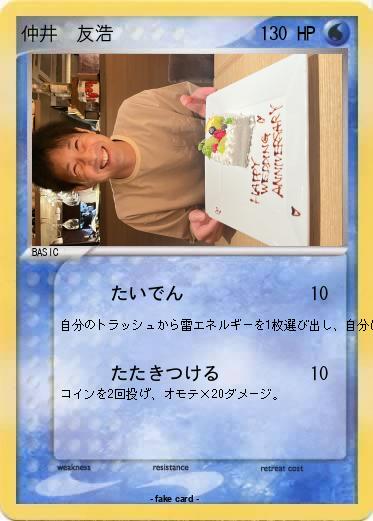 仲井　友浩 130 HP
HAPPY
WEDDING
ANNIVERSARY
BASIC
たいでん 10
自分のトラッシュから雷エネルギーを1枚選び出し、自分
たたきつける 10
コインを2回投げ、オモテ×20ダメージ。
weakness resistance retreat cost
- fake card -